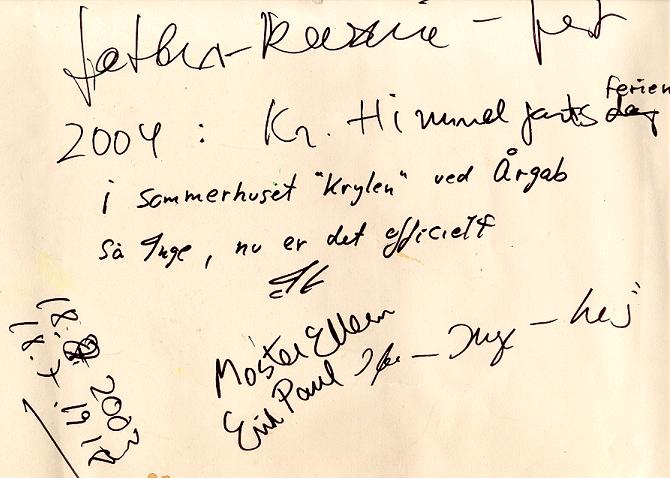 fætter-kusine-fest
2004 : Kr. Himmelfartsferien
i sommerhuset "Krylen" ved Årgab
så Inge, nu er det officielt
Moster Ellen
Erik Paul - Inge - hej
18. 2003
18.